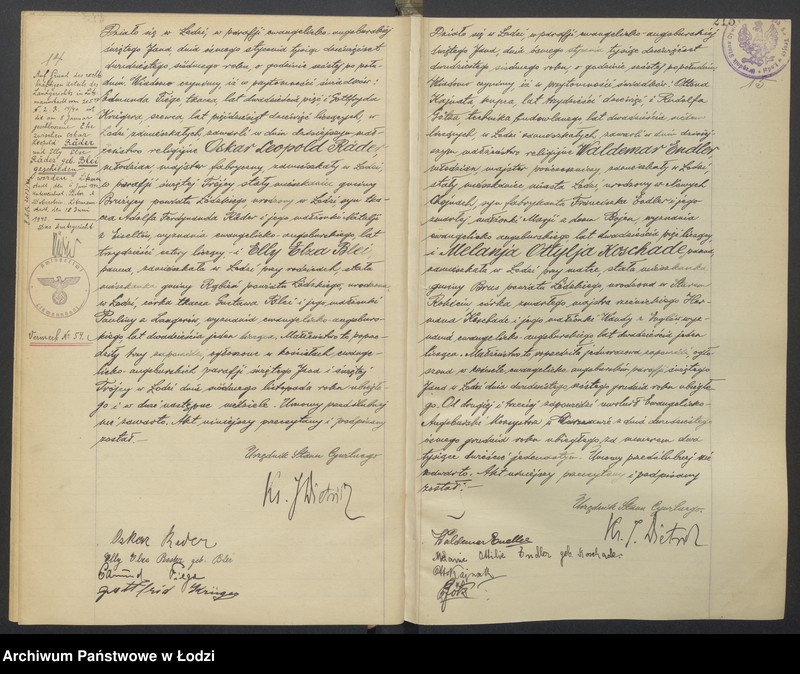 14
Auf Grund des rechts-
kräftigen Urteils des
Landgerichts in Litz-
mannstadt vom
geschlossene Ehe
zwischen Oskar
Leopold Räder
und Elly Else
Räder geb. Blei
geschieden
worden. Litzmann-
stadt, den
1941.
Das Amtsgericht
Vermerk
Działo się w Łodzi, w parafji ewangelicko-augsburskiej
świętego Jana, dnia ósmego stycznia tysiąc dziewięćset
dwudziestego siódmego roku, o godzinie szóstej po połu-
dniu. Wiadomo czynimy, iż w przytomności świadków:
Edmunda Fiege, tkacza, lat dwadzieścia pięć i Gottfryda
Krügera, szewca, lat pięćdziesiąt dziewięć liczących, w
Łodzi zamieszkałych, zawarli w dniu dzisiejszym mał-
żeństwo religijne Oskar Leopold Räder,
młodzian, majster fabryczny, zamieszkały w Łodzi,
w parafji świętej Trójcy, stały mieszkaniec gminy
Brójce, powiatu Łódzkiego, urodzony w Łodzi, syn tka-
cza Adolfa Ferdynanda Räder i jego małżonki Natalji
z wyznania ewangelicko-augsburskiego, lat
trzydzieści cztery liczący - i Elly Elza Blei
panna, zamieszkała w Łodzi przy rodzicach, stała
mieszkanka gminy Rąbień powiatu Łódzkiego, urodzona
w Łodzi, córka tkacza Gustawa Blei i jego małżonki
Pauliny z wyznania ewangelicko-augsburs-
kiego, lat dwadzieścia jeden licząca. Małżeństwo to poprze-
dziły trzy zapowiedzi, ogłoszone w kościołach ewange-
licko-augsburskich parafji świętego Jana i świętej
Trójcy w Łodzi dnia siódmego listopada roku ubiegłe-
go i w dwie następne niedziele. Umowy przedślubnej
nie zawarto. Akt niniejszy przeczytany i podpisany
został.—
Urzędnik Stanu Cywilnego
Ks. J. Dietrich
Oskar Reder
Elly Elsa Reder geb. Blei
Edmund Fiege
Gottfried Krüger
215
15
Działo się w Łodzi, w parafji ewangelicko-augsburskiej
świętego Jana, dnia ósmego stycznia tysiąc dziewięćset
dwudziestego siódmego roku, o godzinie szóstej po południu.
Wiadomo czynimy, iż w przytomności świadków: Ottona
Kajnata, kupca, lat trzydzieści dziewięć i Rudolfa
Götza, technika budowlanego, lat dwadzieścia siedem
liczących, w Łodzi zamieszkałych, zawarli w dniu dzisiej-
szym małżeństwo religijne Waldemar Endler
młodzian, majster zamieszkały w Łodzi,
stały mieszkaniec miasta Łodzi, urodzony w Nowych
Chojnach, syn fabrykanta Franciszka Endler i jego
zmarłej małżonki z domu wyznania
ewangelicko augsburskiego lat dwadzieścia pięć liczący,
i Melanja Ottylja Koschade, panna,
zamieszkała w Łodzi przy matce, stała mieszkanka
gminy Brus powiatu Łódzkiego, urodzona w Starem
Rokiciu, córka zmarłego majstra rzeźnickiego Her-
mana Koschade i jego małżonki Wandy z wyz-
nania ewangelicko augsburskiego, lat dwadzieścia jeden
licząca. Małżeństwo to poprzedziła jednorazowa zapowiedź, ogło-
szona w kościele ewangelicko augsburskim parafji świętego
Jana w Łodzi dnia dwudziestego szóstego grudnia roku ubiegłe-
go. Od drugiej i trzeciej zapowiedzi zwolnił Ewangelicko-
Augsburski Konsystorz w Warszawie z dnia dwudziestego
ósmego grudnia roku ubiegłego, za numerem dwa
tysiące dwieście jedenastym. Umowy przedślubnej nie
zawarto. Akt niniejszy przeczytany i podpisany
został.—
Urzędnik Stanu Cywilnego.
Ks. J. Dietrich
Waldemar Endler
Melanie Ottilie Endler geb. Koschade.
Otto Kajnath
R. Götz
Archiwum Państwowe w Łodzi